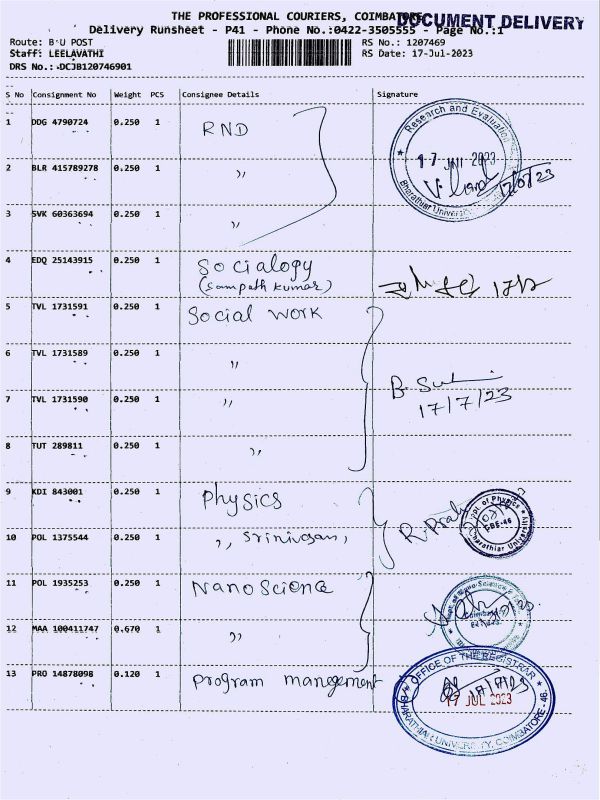 THE PROFESSIONAL COURIERS, COIMBATORE
DOCUMENT DELIVERY
Delivery Runsheet - P41 - Phone No.:0422-3505555 - Page No.:1
Route: B U POST
RS No.: 1207469
Staff: LEELAVATHI
RS Date: 17-Jul-2023
DRS No.: DCJB120746901
S No Consignment No Weight PCS Consignee Details Signature
1 DDG 4790724 0.250 1 RND
Research and Evaluation
17 JUL 2023
17/07/23
Bharathiar University
2 BLR 415789278 0.250 1 ,,
3 SVK 60363694 0.250 1 ,,
4 EDQ 25143915 0.250 1 Socialogy
(Sampath kumar)
5 TVL 1731591 0.250 1 Social work
6 TVL 1731589 0.250 1 ,,
7 TVL 1731590 0.250 1 ,,
17/7/23
8 TUT 289811 0.250 1 ,,
9 KDI 843001 0.250 1 Physics
Dept. of Physics
CBE-46
Bharathiar University
10 POL 1375544 0.250 1 ,, Srinivasan,
11 POL 1935253 0.250 1 NanoScience
12 MAA 100411747 0.670 1 ,,
13 PRO 14878098 0.120 1 Program management
OFFICE OF THE REGISTRAR
17/7/23
17 JUL 2023
BHARATHIAR UNIVERSITY, COIMBATORE - 46